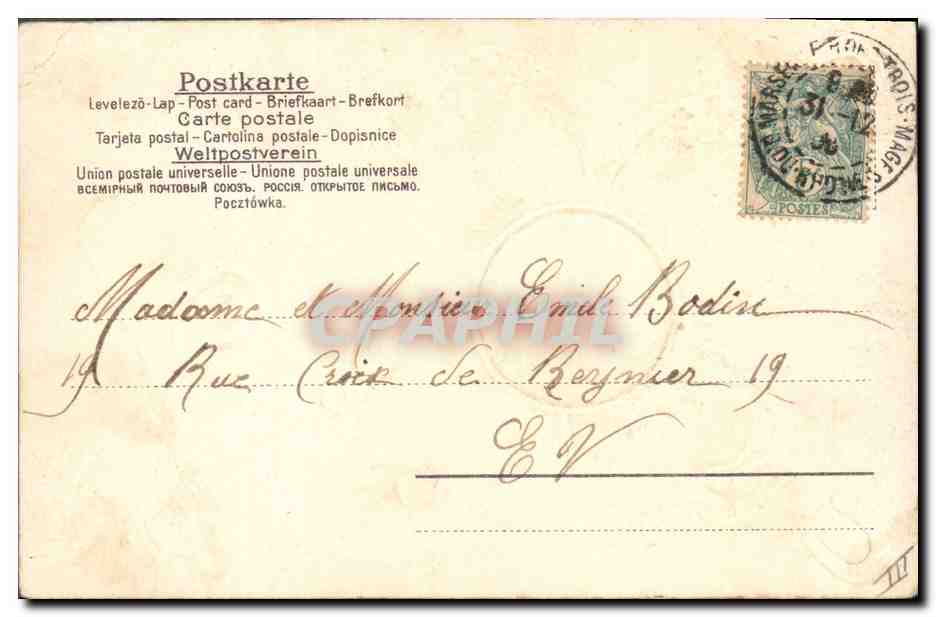 Postkarte
Levelező-Lap – Post card – Briefkaart – Brefkort
Carte postale
Tarjeta postal – Cartolina postale – Dopisnice
Weltpostverein
Union postale universelle – Unione postale universale
ВСЕМІРНЫЙ ПОЧТОВЫЙ СОЮЗЪ. РОССІЯ. ОТКРЫТОЕ ПИСЬМО.
Pocztówka.
31 - 12
POSTES
Madame et Monsieur Emile Bodin
CPAPHIL
19 Rue Croix de Reynier 19
EV
III